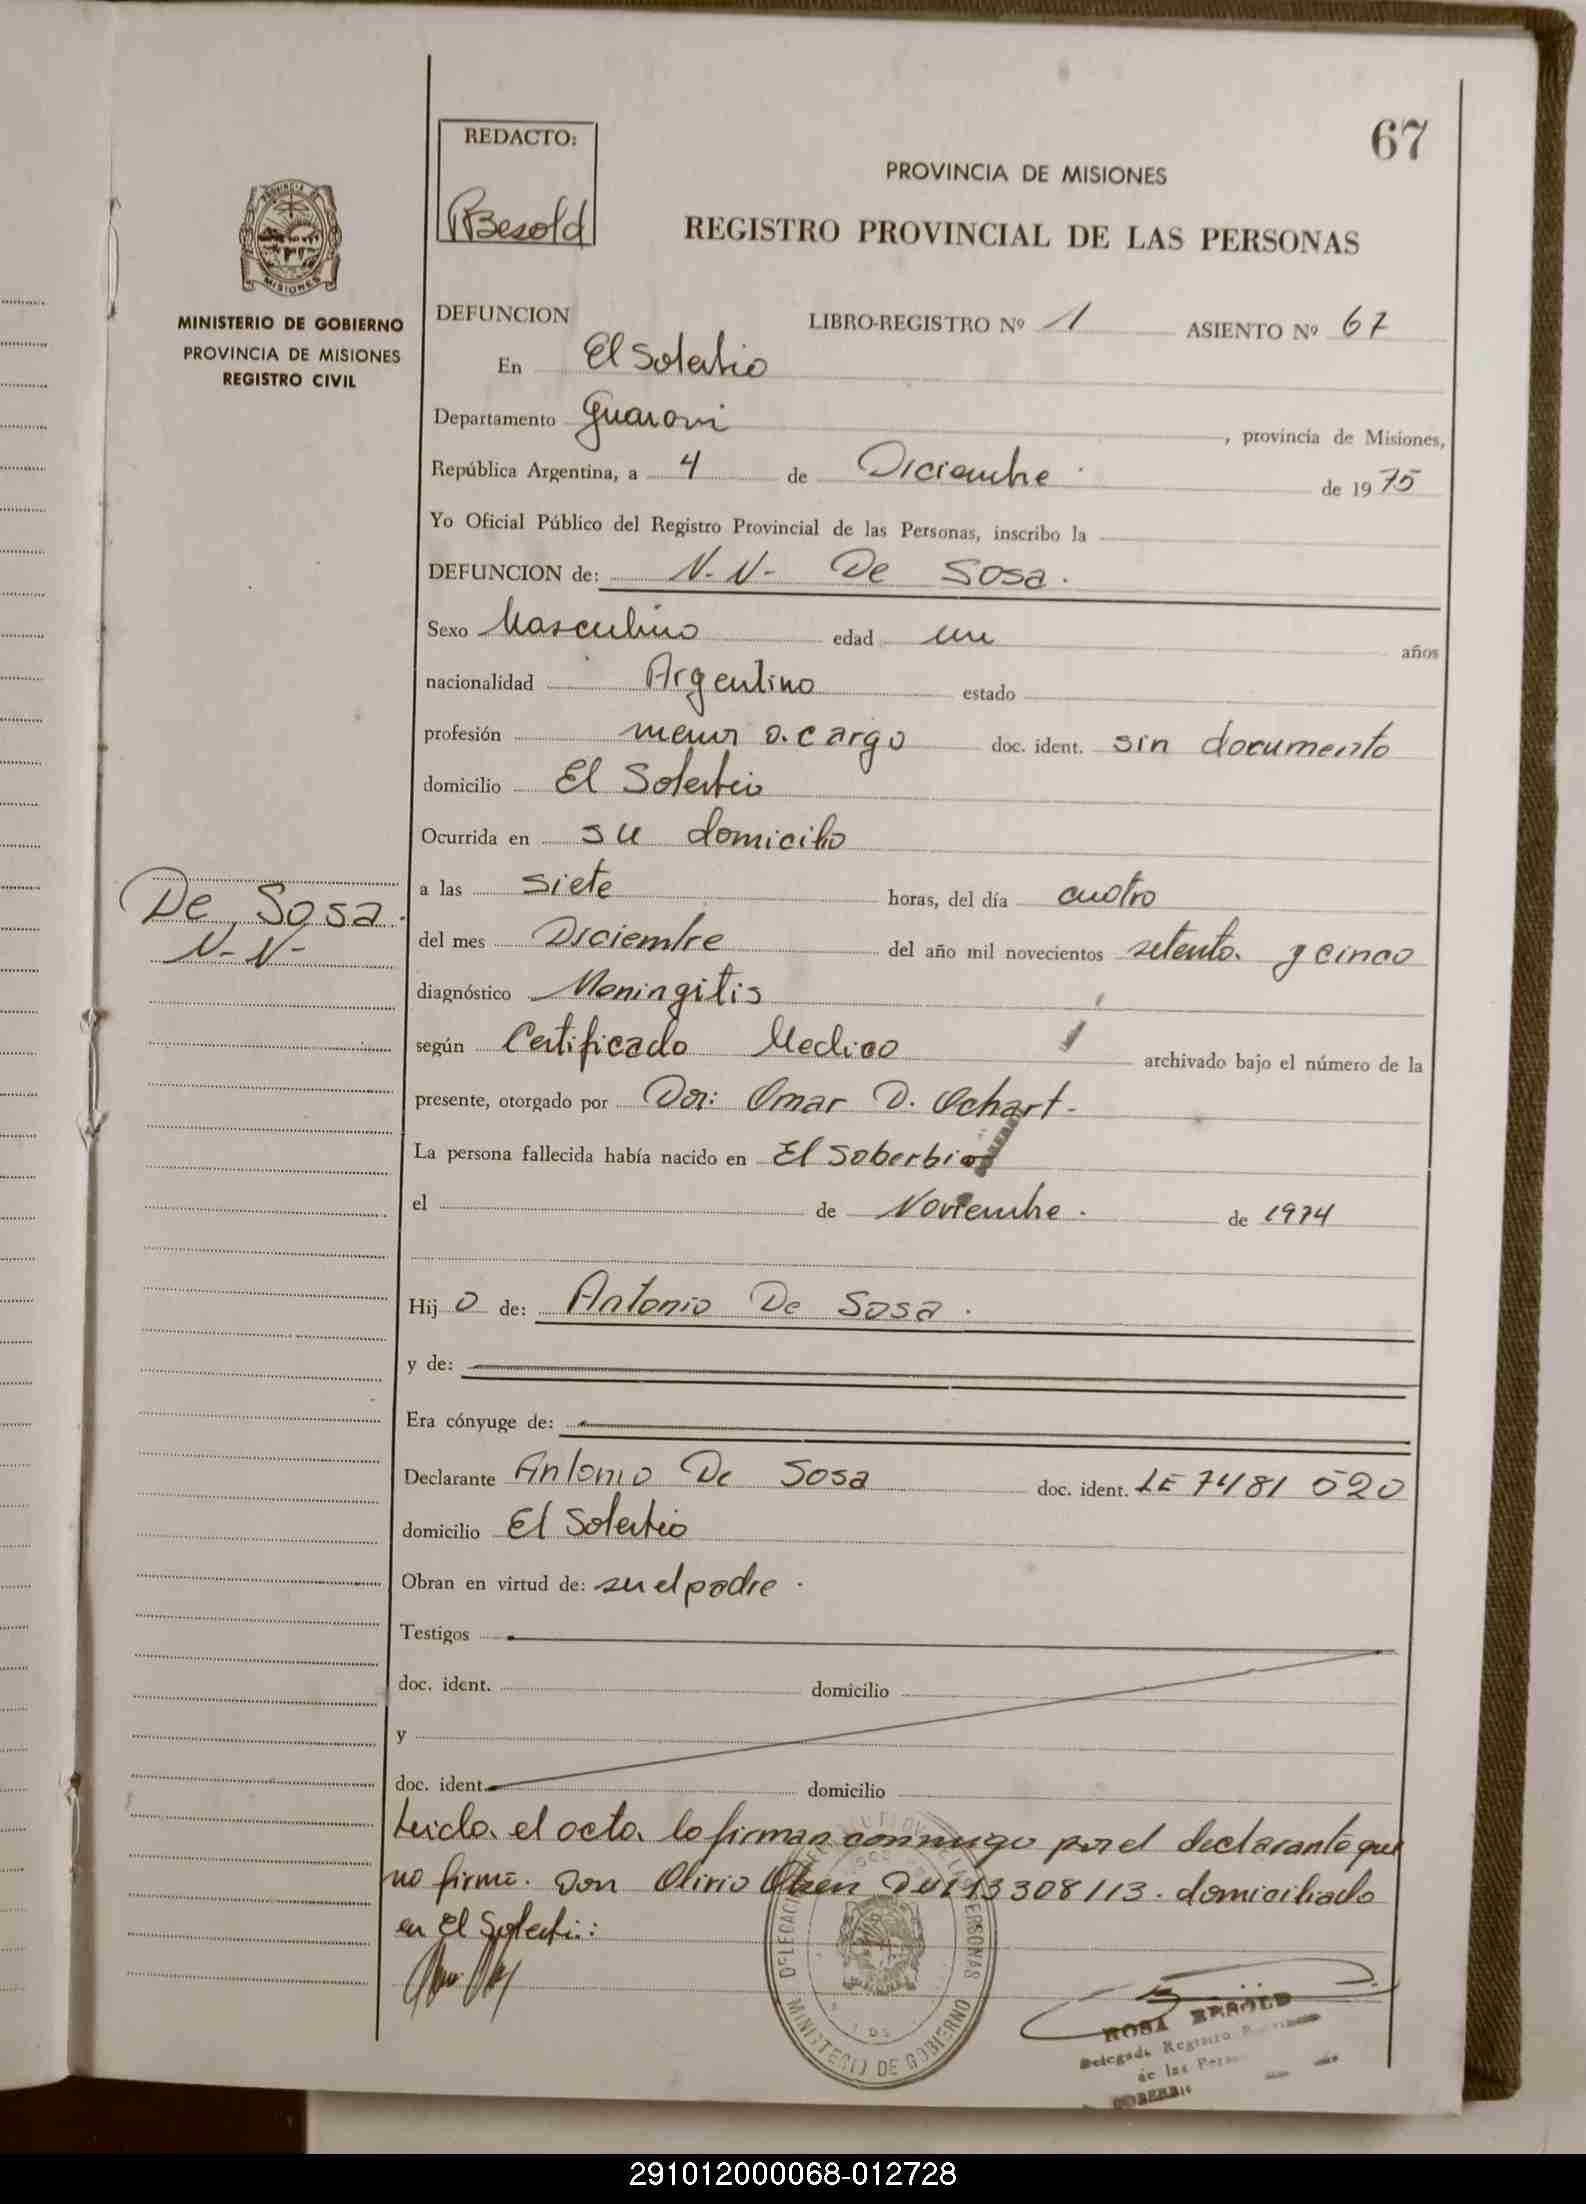 67
REDACTO:
RBesold
PROVINCIA DE MISIONES
REGISTRO PROVINCIAL DE LAS PERSONAS
MINISTERIO DE GOBIERNO
PROVINCIA DE MISIONES
REGISTRO CIVIL
DEFUNCION LIBRO-REGISTRO Nº 1 ASIENTO Nº 67
En El Soberbio
Departamento Guarani, provincia de Misiones,
República Argentina, a 4 de Diciembre de 1975
Yo Oficial Público del Registro Provincial de las Personas, inscribo la
DEFUNCION de: N. N. De Sosa.
Sexo Masculino edad un años
nacionalidad Argentino estado
profesión menor a cargo doc. ident. sin documento
domicilio El Soberbio
Ocurrida en su domicilio
a las siete horas, del día cuatro
De Sosa.
N-N-
del mes Diciembre del año mil novecientos setenta y cinco
diagnóstico Meningitis
según Certificado Medico archivado bajo el número de la
presente, otorgado por Dor: Omar D. Ochart-
La persona fallecida había nacido en El Soberbio
el de Noviembre. de 1974
Hij o de: Antonio De Sosa.
y de:
Era cónyuge de:
Declarante Antonio De Sosa doc. ident. LE 7481 520
domicilio El Soberbio
Obran en virtud de: ser el padre.
Testigos
doc. ident. domicilio
y
doc. ident. domicilio
Leida el acta la firman conmigo por el declarante que
no firma. Don Olirio DNI 13308113. domiciliado
en El Soberbio:
DELEGACION PERSONAS
MINISTERIO DE GOBIERNO
ROSA BESOLD
Delegada Registro Provincial
de las Personas
SOBERBIO
291012000068-012728